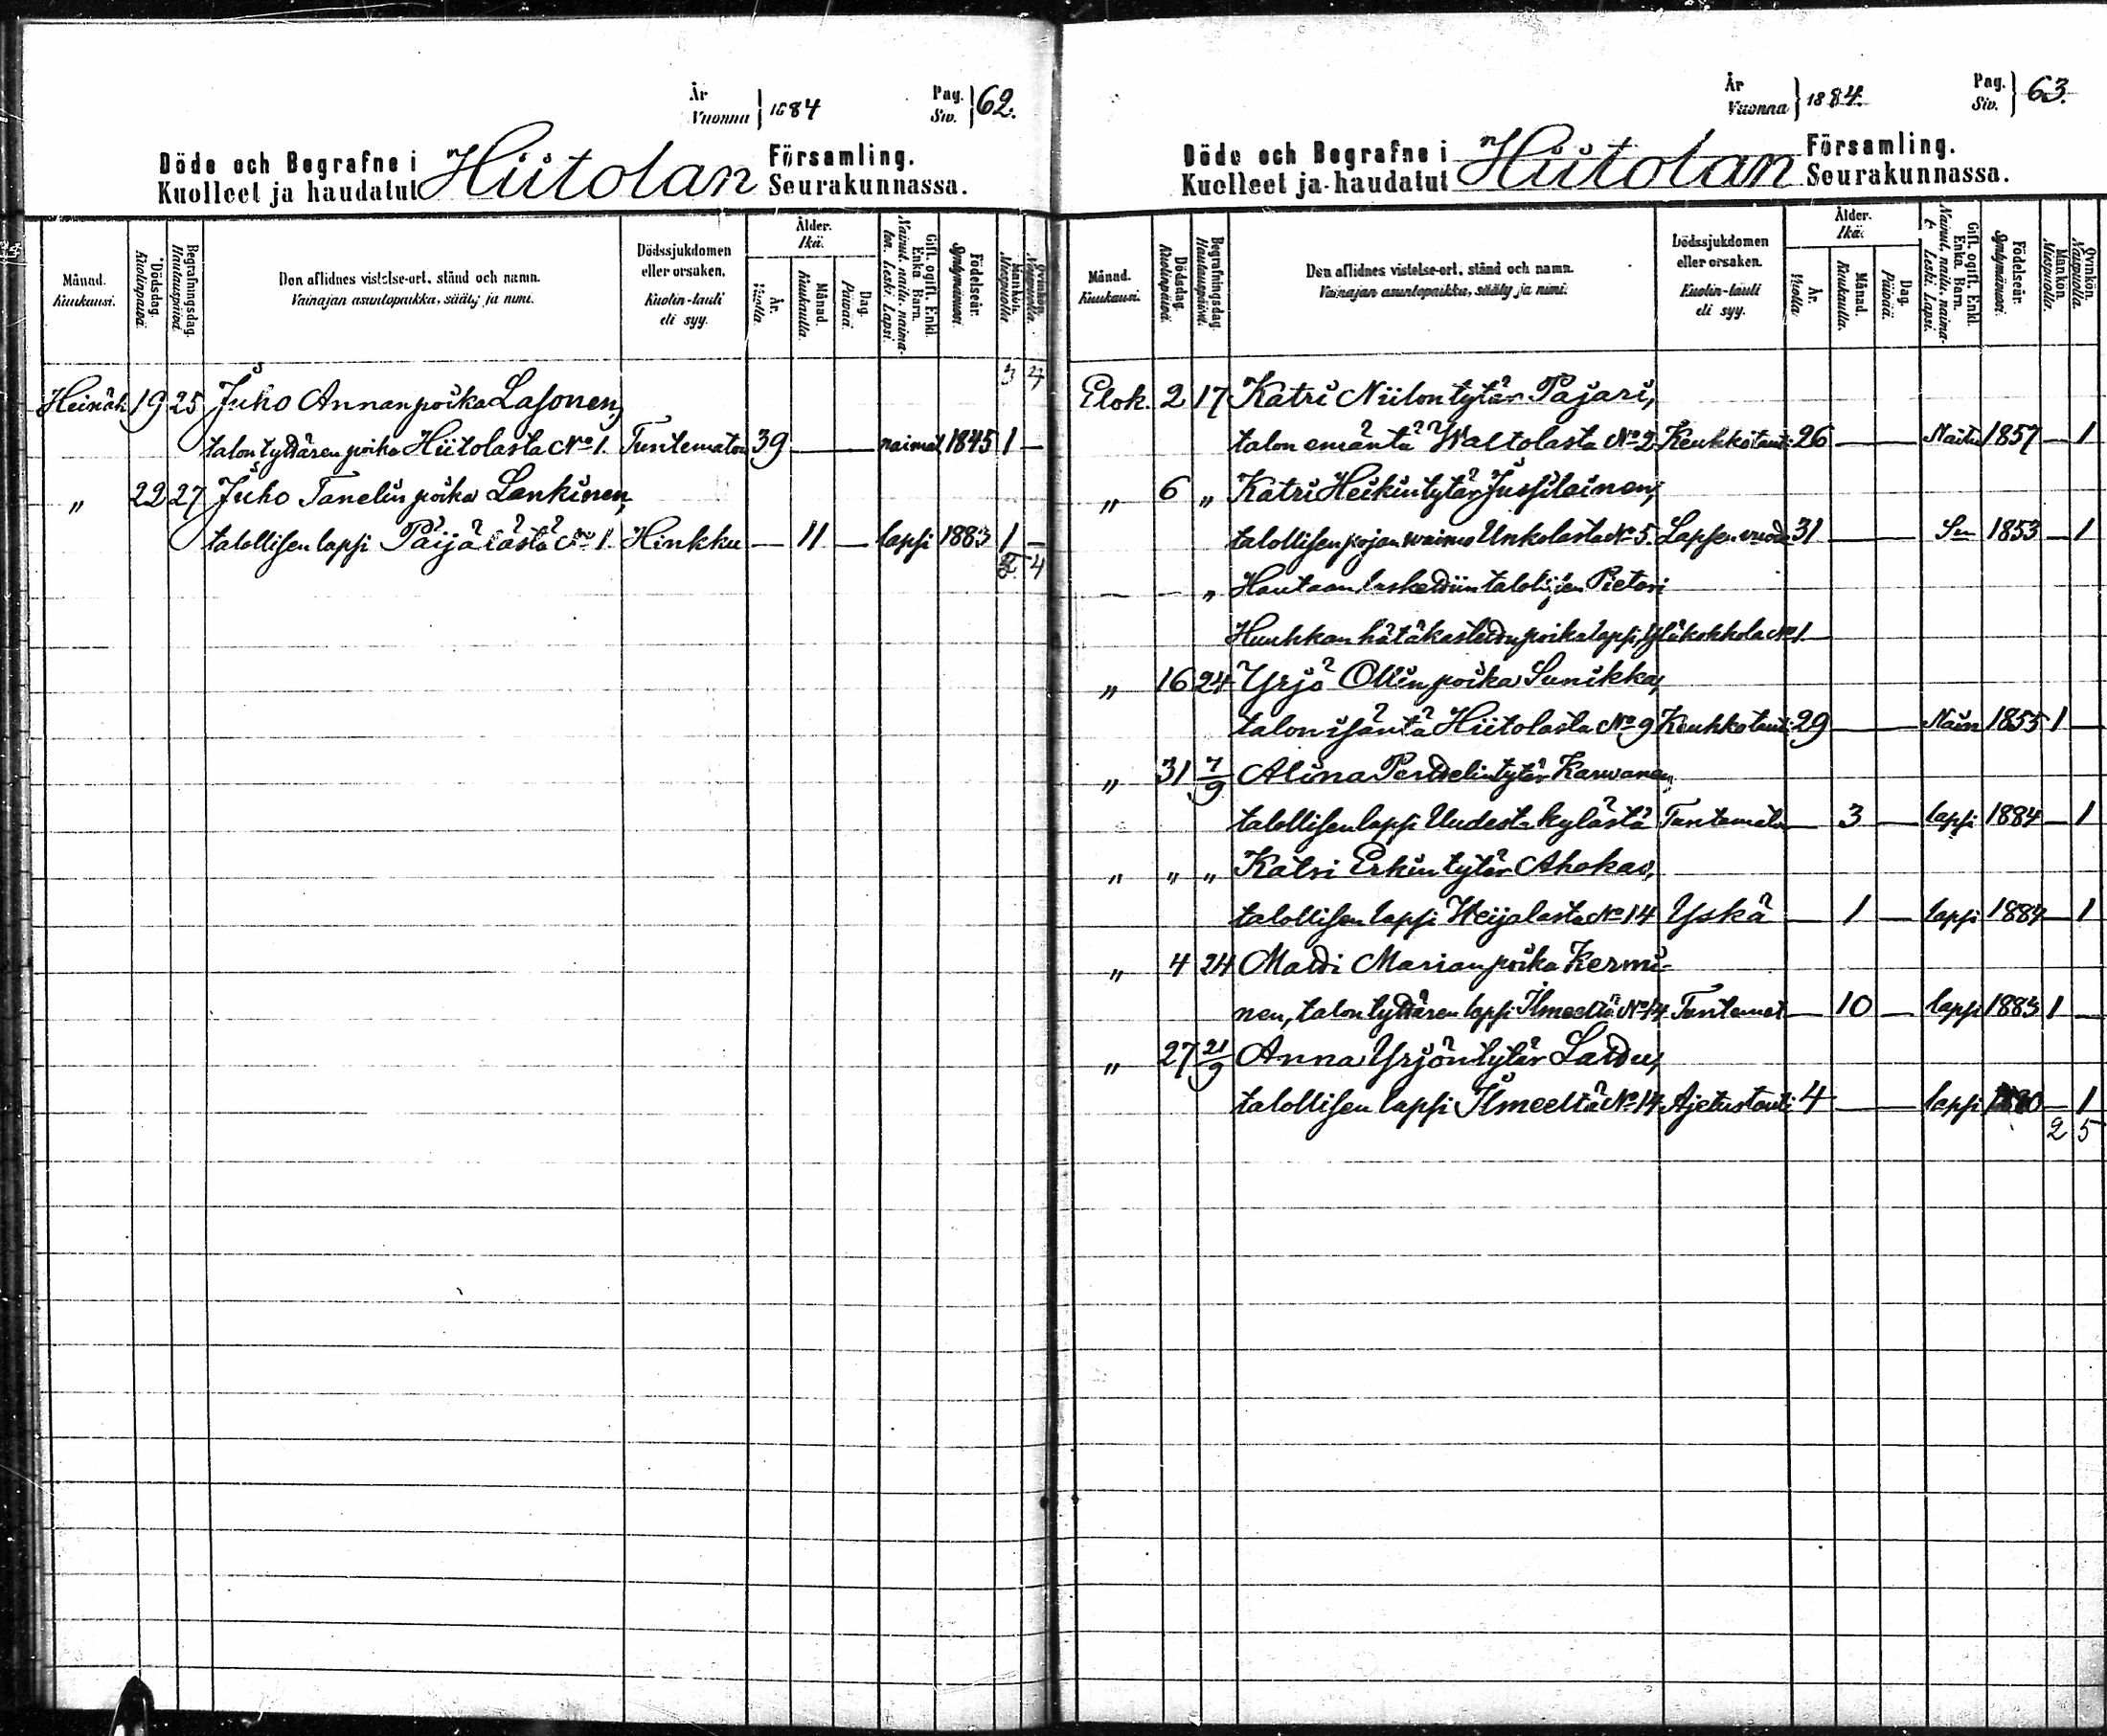 År
Vuonna } 1884
Pag.
Siv. } 62.
Döde och Begrafne i Hiitolan Församling.
Kuolleet ja haudatut Seurakunnassa.
Månad.
Kuukausi.
Dödsdag.
Kuolinpäivä.
Begrafningsdag.
Hautauspäivä.
Den aflidnes vistelse-ort, stånd och namn.
Vainajan asuntopaikka, sääty ja nimi.
Dödssjukdomen
eller orsaken.
Kuolin-tauti
eli syy.
Ålder.
Ikä.
År.
Vuotta
Månad.
Kuukautta.
Dag.
Päivää.
Gift, ogift, Enkl.
Enka. Barn.
Nainut, naitu, naima-
ton. Leski. Lapsi.
Födelseår.
Syntymävuosi.
Mankön.
Miespuolia.
Qvinkön.
Naispuolia.
3 4
Heinäk 19 25 Juho Annanpoika Lasonen,
talon tyttären poika Hiitolasta No 1. Tuntematon 39 — — naimat 1845 1 —
„ 22 27 Juho Tanelin poika Lankinen,
talollisen lapsi Päijälästä No 1 Hinkku — 11 — lapsi 1883 1 —
4
År
Vuonna } 1884.
Pag.
Siv. } 63.
Döde och Begrafne i Hiitolan Församling.
Kuolleet ja haudatut Seurakunnassa.
Månad.
Kuukausi.
Dödsdag.
Kuolinpäivä.
Begrafningsdag.
Hautauspäivä.
Den aflidnes vistelse-ort, stånd och namn.
Vainajan asuntopaikka, sääty ja nimi.
Dödssjukdomen
eller orsaken.
Kuolin-tauti
eli syy.
Ålder.
Ikä.
År.
Vuotta
Månad.
Kuukautta.
Dag.
Päivää.
Gift, ogift, Enkl.
Enka. Barn.
Nainut, naitu, naima-
t. Leski. Lapsi.
Födelseår.
Syntymävuosi.
Mankön.
Miespuolia.
Qvinkön.
Naispuolia.
Elok. 2 17 Katri Niilontytär Pajari,
talon emäntä Waltolasta No 2 Keuhkotauti 26 — — Naitu 1857 — 1
„ 6 „ Katri Heikintytär Jussilainen,
talollisen pojan waimo Unkolasta No 5. Lapsen vuode 31 — — Sm 1853 — 1
— — „ Hautaan laskettiin talollisen Pietari
Huuhkan hätäkastettu poikalapsi, Yläkokkola No 1
„ 16 24 Yrjö Ollin poika Sunikka,
talon isäntä Hiitolasta No 9 Keuhkotauti 29 — — Nain 1855 1 —
„ 31 7/9 Alina Perttelintytär Karwanen,
talollisen lapsi Uudesta kylästä Tuntematon — 3 — lapsi 1884 — 1
„ „ „ Katri Erkin tytär Ahokas,
talollisen lapsi Weijalasta No 14 Yskä — 1 — lapsi 1884 — 1
„ 4 24 Matti Marianpoika Kermi-
nen, talon tyttären lapsi Ilmeeltä No 14 Tuntemat — 10 — lapsi 1883 1 —
„ 27 21/9 Anna Yrjöntytär Lattu,
talollisen lapsi Ilmeeltä No 14 Ajetustauti 4 — — lapsi 1880 — 1
2 5